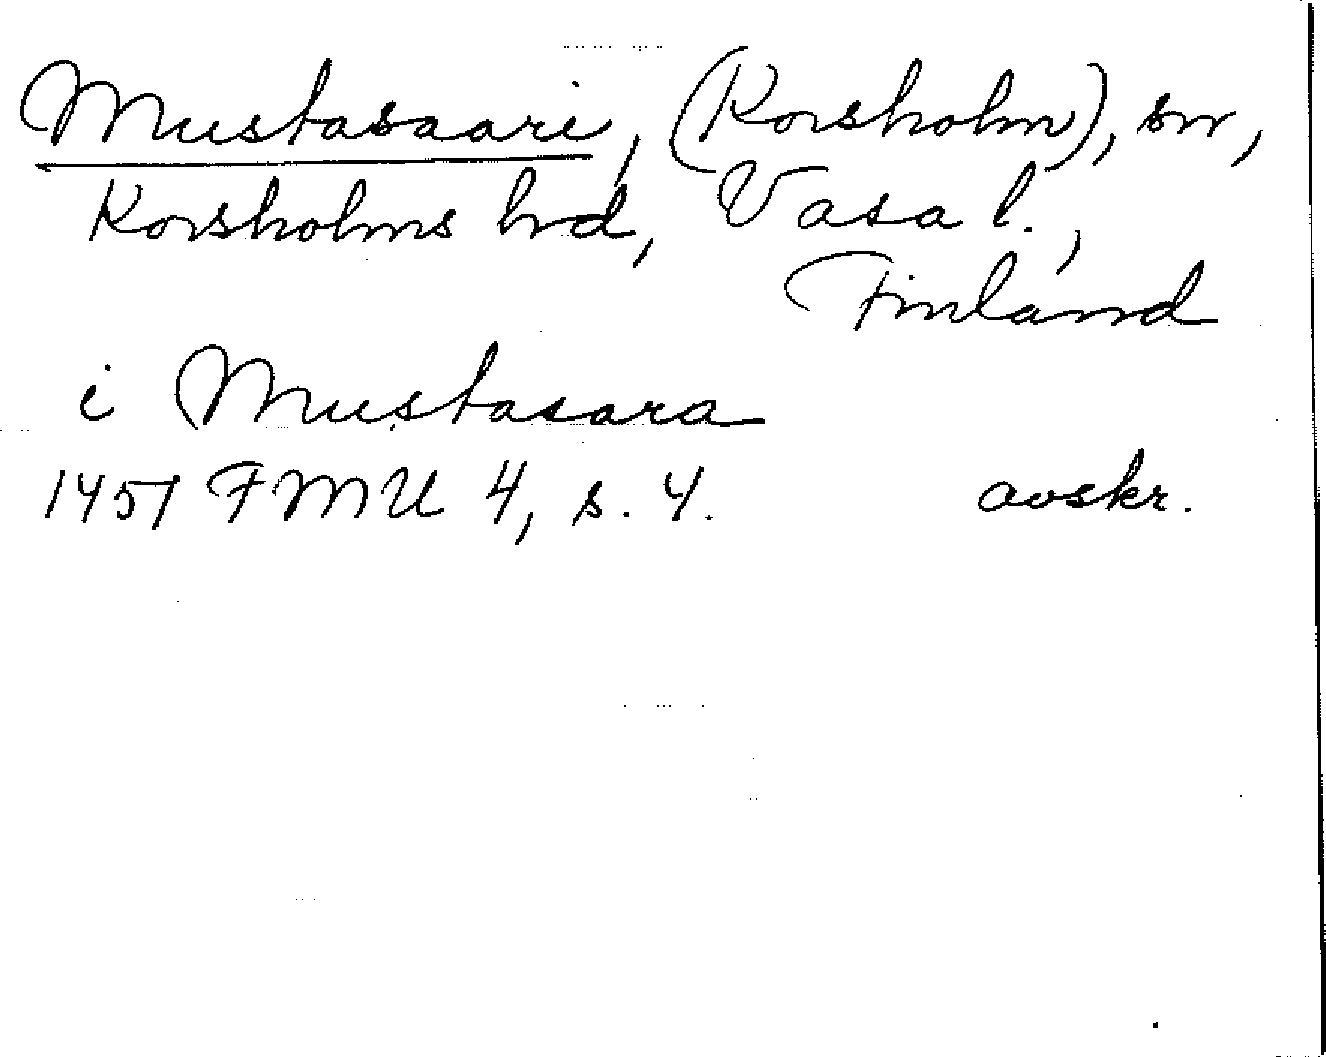 Mustasaari, (Korsholm), sn,
Korsholms hd, Vasa l.,
Finland
i Mustasara
1457 FMU 4, s. 4. avskr.